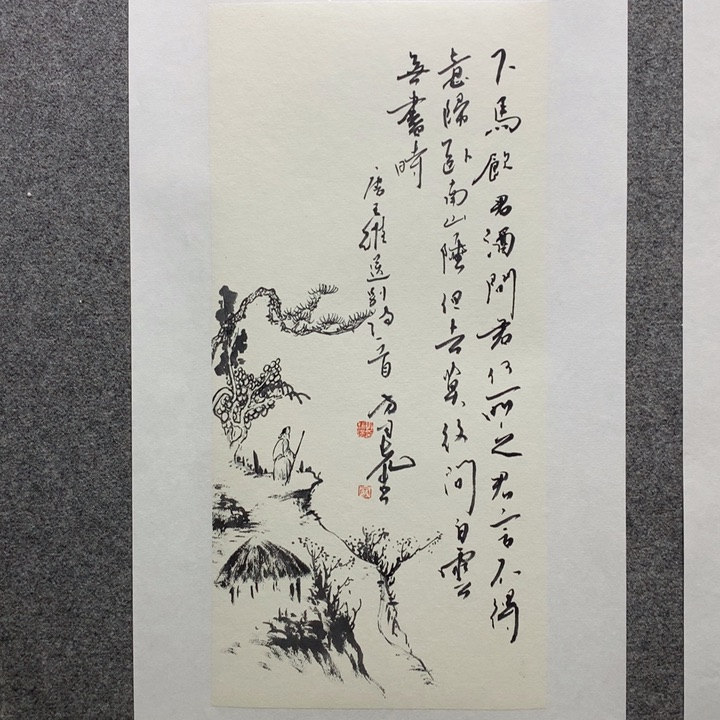 下馬飲君酒問君何所之君言不得
意歸臥南山陲但去莫復問白雲
無盡時
唐王維送別詩一首